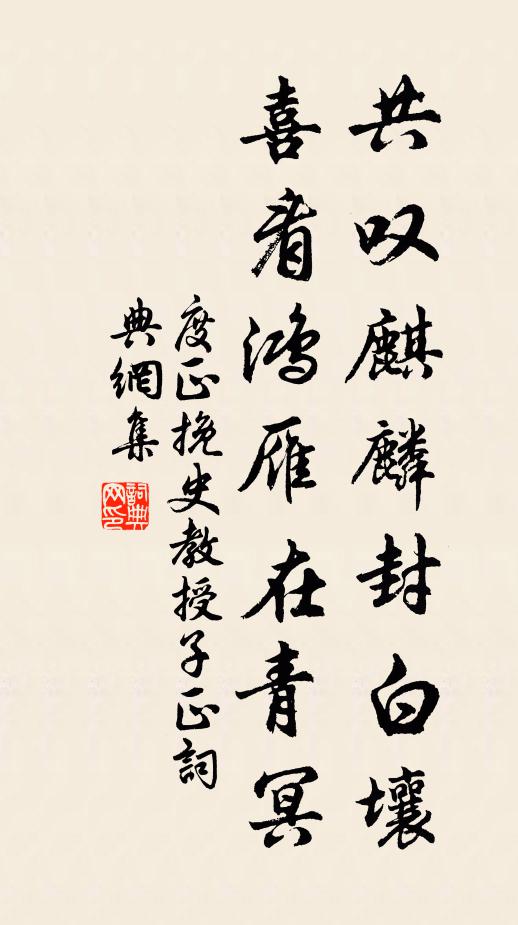 共叹麒麟封白壤
喜看鸿雁在青冥
度正挽史教授子正詞
典網集
詞典网印